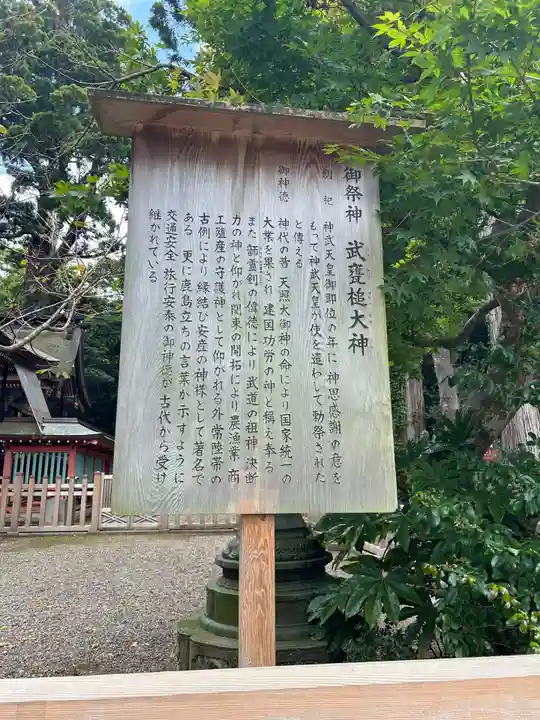 御祭神 武甕槌大神
創祀 神武天皇御即位の年に 神恩感謝の意を
もって神武天皇が使を遣わして勅祭された
と傳える
御神徳 神代の昔 天照大御神の命により国家統一の
大業を果され 建国功労の神と称え奉る
また 韴霊剣の偉徳により 武道の祖神 決断
力の神と仰がれ関東の開拓により農漁業 商
工殖産の守護神として仰がれる外常陸帯の
古例により縁結び安産の神様として著名で
ある 更に鹿島立ちの言葉が示すように
交通安全 旅行安泰の御神徳が 古代から受け
継がれている